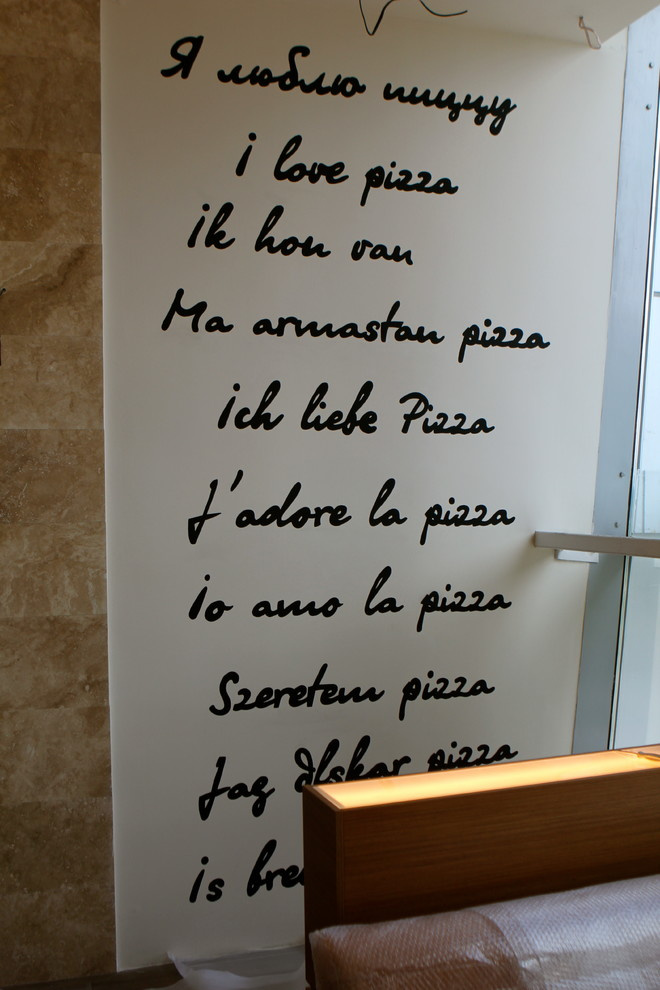 Я люблю пиццу
i love pizza
ik hou van
Ma armastan pizza
ich liebe Pizza
J'adore la pizza
io amo la pizza
Szeretem pizza
Jag älskar pizza
is